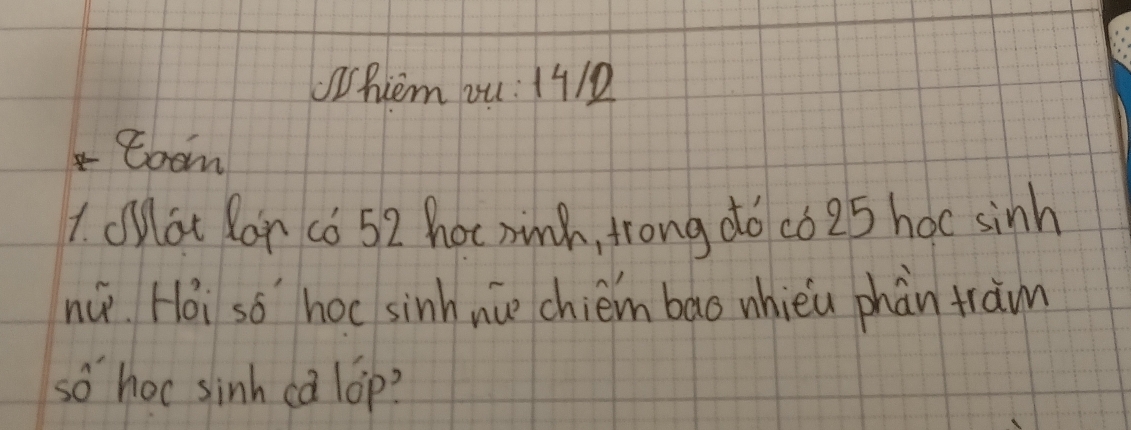 Nhiệm vụ: 14/2
* Toán
1. Một lớp có 52 học sinh, trong đó có 25 học sinh
nữ. Hỏi số học sinh nữ chiếm bao nhiêu phần trăm
số học sinh cả lớp?